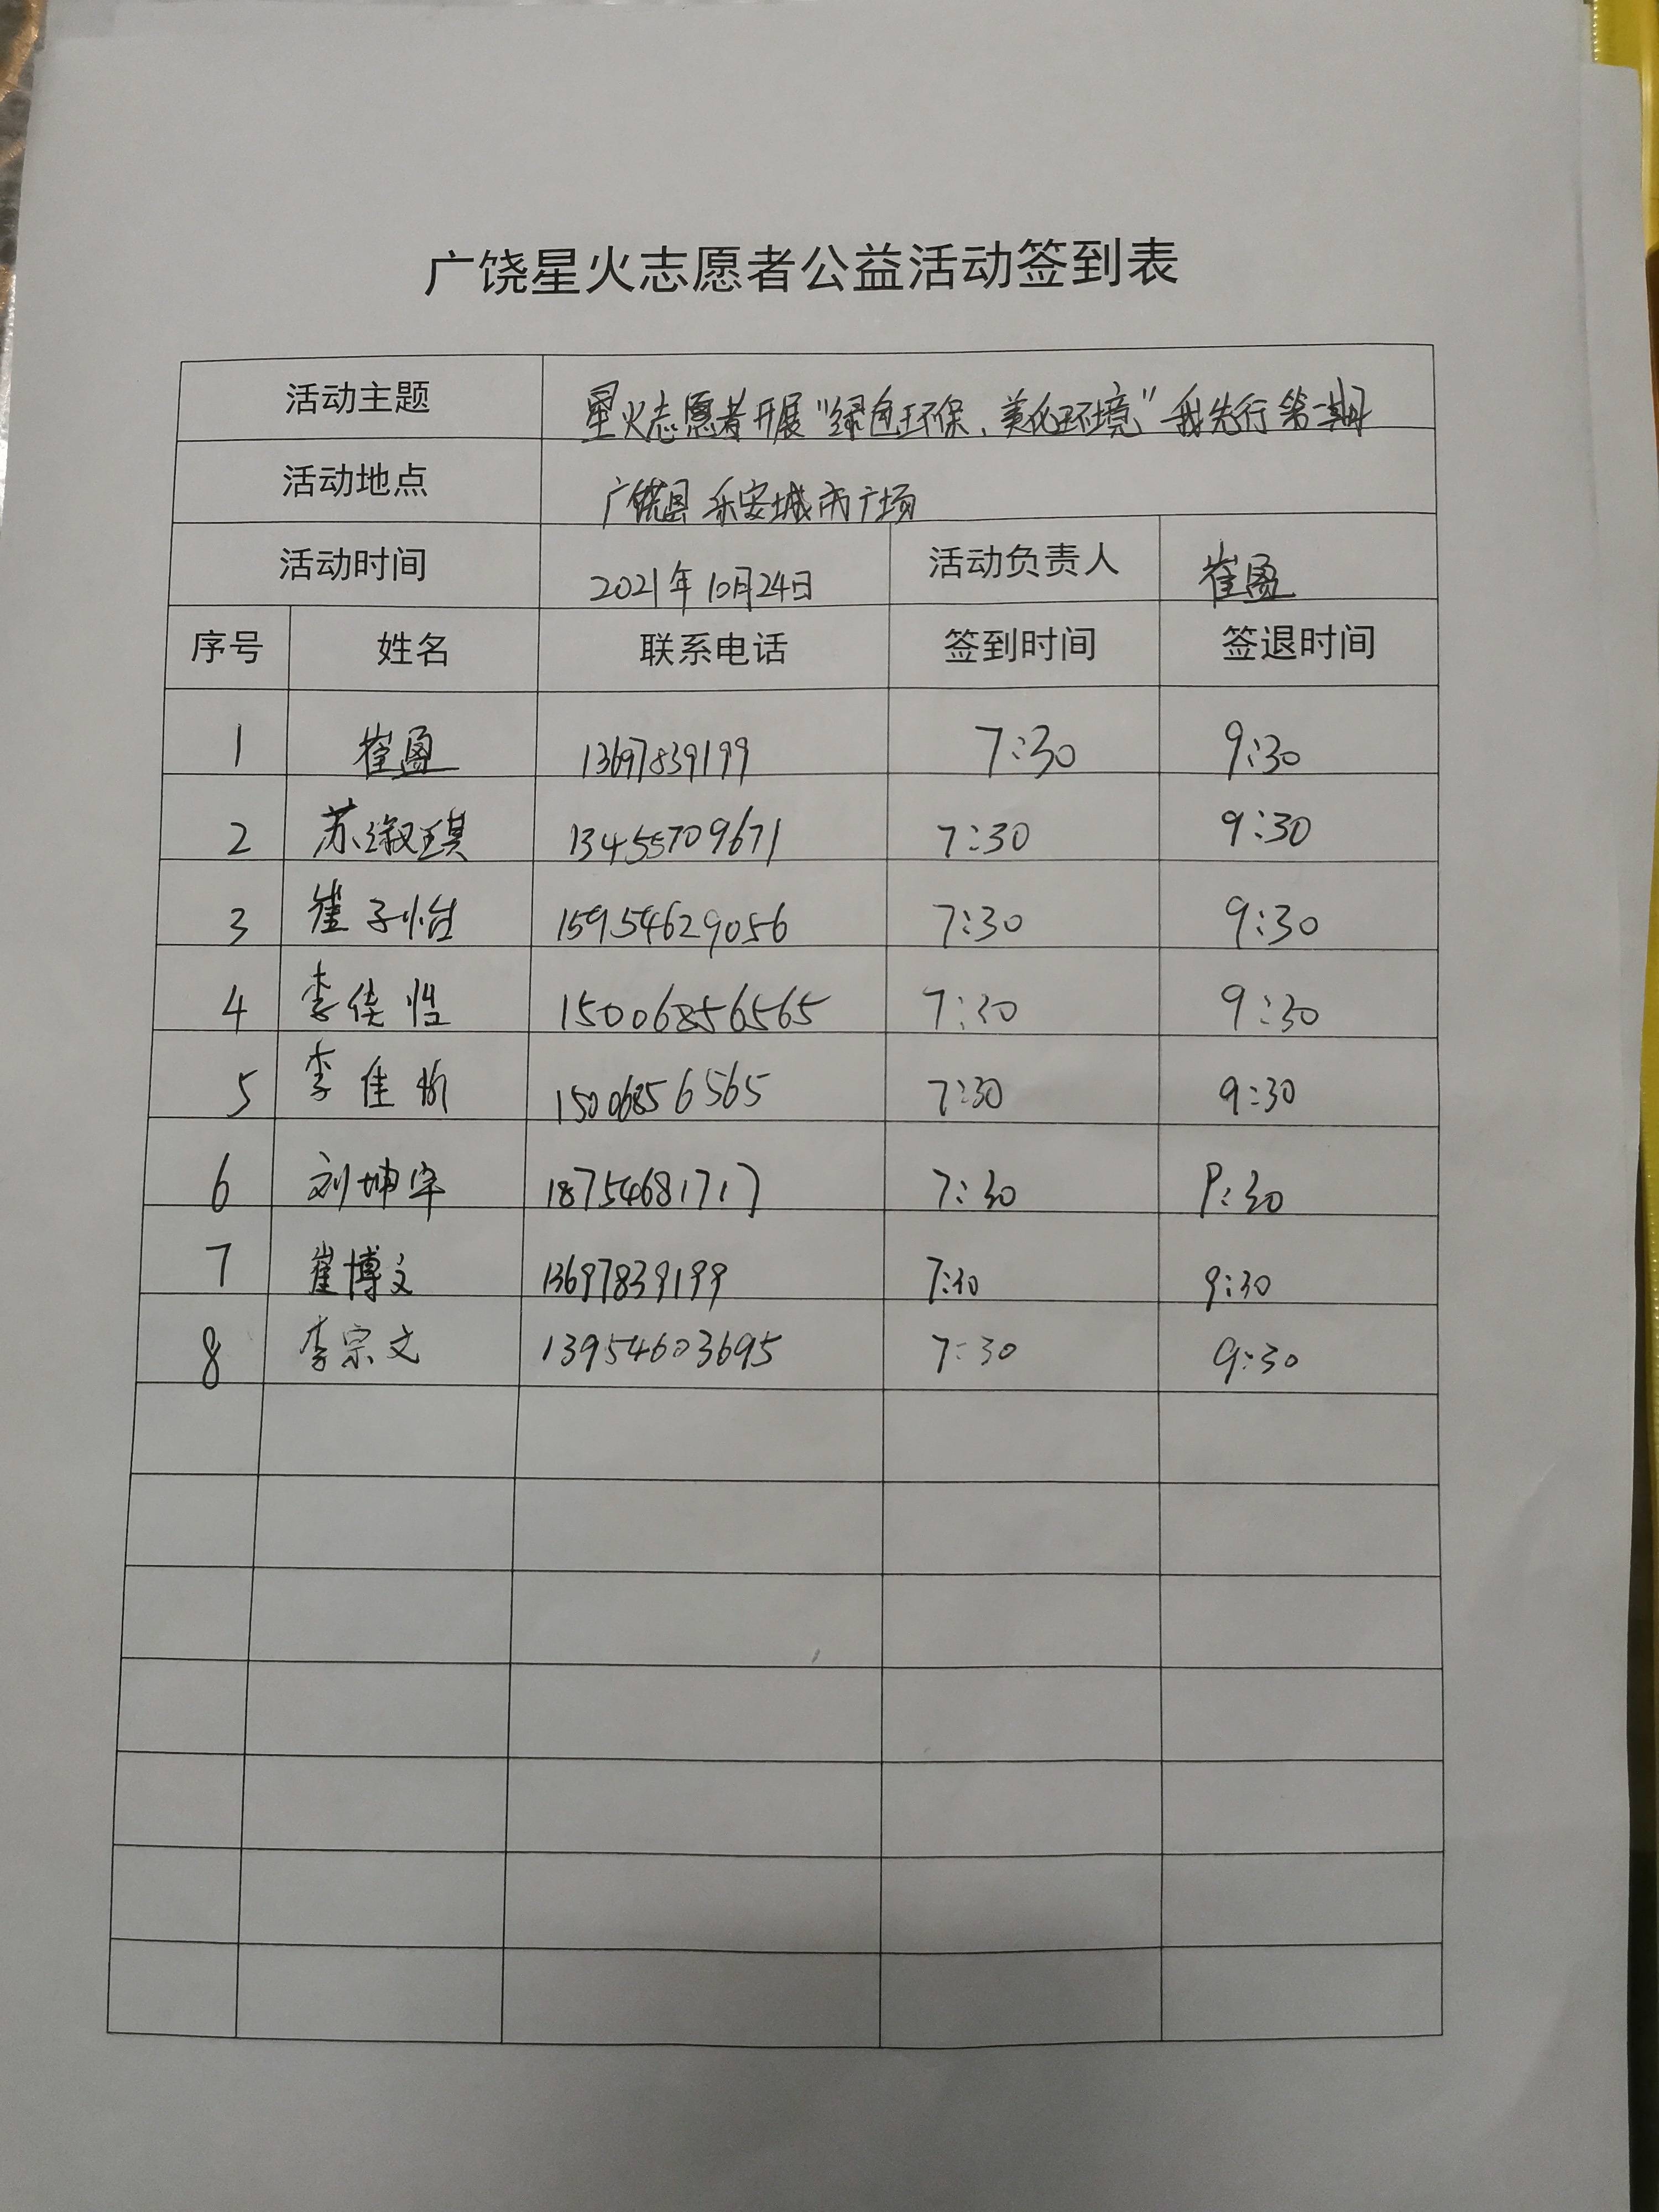 广饶星火志愿者公益活动签到表
活动主题 星火志愿者开展“绿色环保、美化环境”我先行第期
活动地点 广饶县乐安城市广场
活动时间 2021年10月24日 活动负责人 崔盈
序号 姓名 联系电话 签到时间 签退时间
1 崔盈 13697839199 7:30 9:30
2 苏淑琪 13455709671 7:30 9:30
3 崔子怡 15954629056 7:30 9:30
4 李佳 15006856565 7:30 9:30
5 李佳 15006856565 7:30 9:30
6 刘坤宇 18754681717 7:30 9:30
7 崔博文 13697839199 7:30 9:30
8 李宗文 13954603695 7:30 9:30